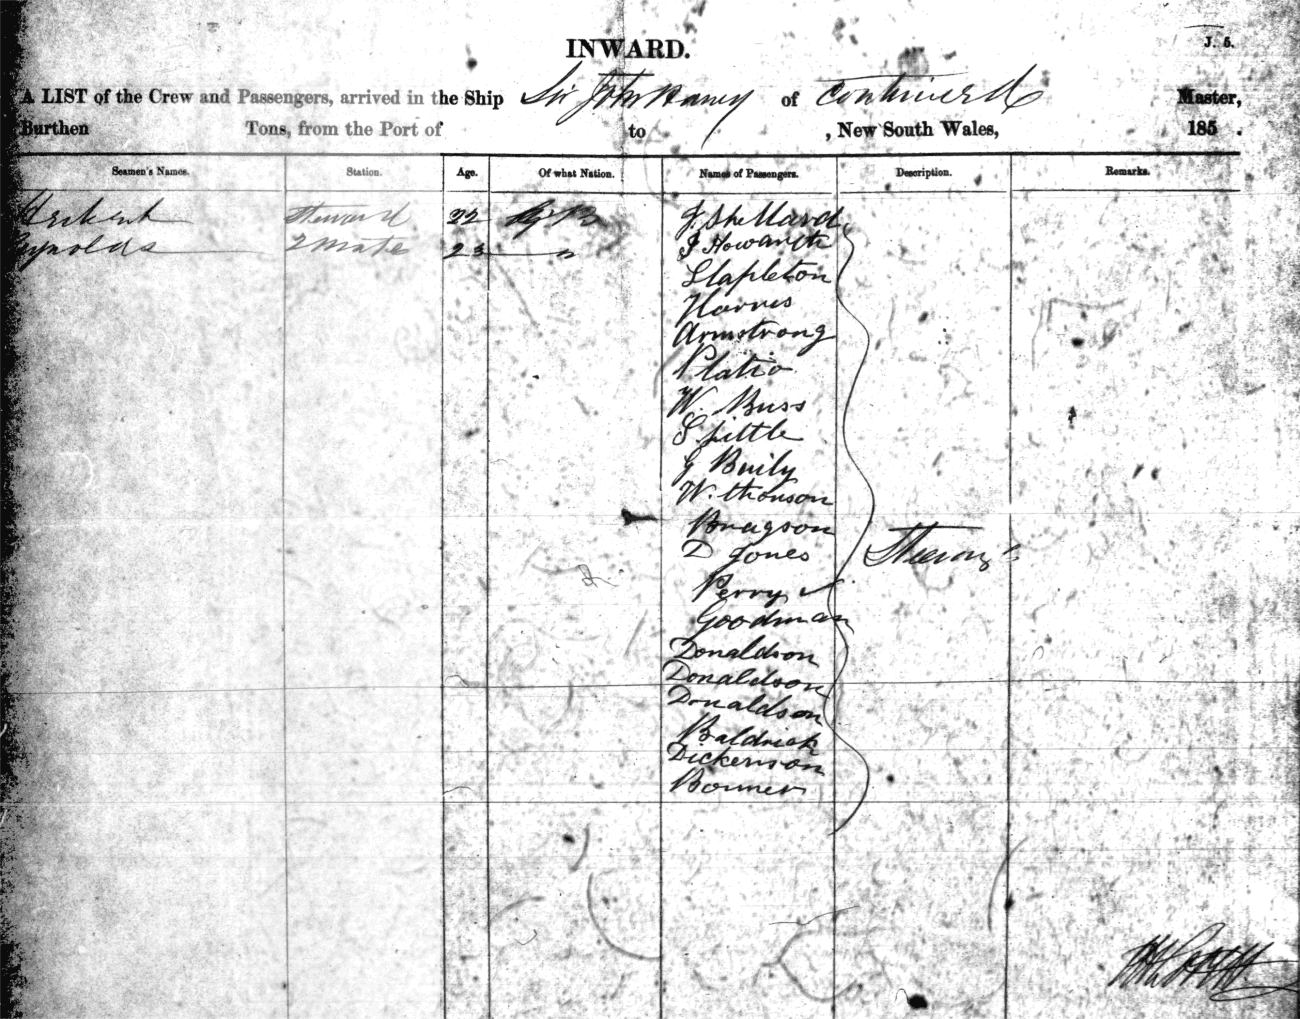 INWARD.
J. 5.
A LIST of the Crew and Passengers, arrived in the Ship Sir John Harvey of Continued Master,
Burthen Tons, from the Port of to , New South Wales, 185 .
Seamen's Names. Station. Age. Of what Nation. Names of Passengers. Description. Remarks.
Steward 22 J. Shellard
Reynolds 2 Mate 23 " J Howarth
Stapleton
Harris
Armstrong
Platio
W. Buss
Spittle
G Baily
W. thomson
Bragson
D Jones
Steerag
Perry
Goodman
Donaldson
Donaldson
Donaldson
Baldrick
Dickenson
Bonner